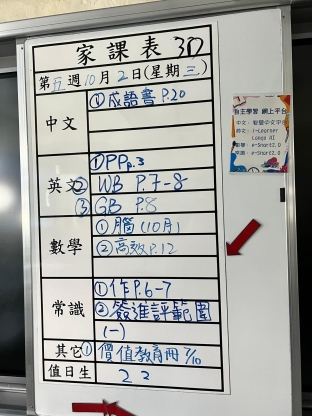 家課表 3D
第五週10月2日(星期三)
中文
①成語書P.20
英文
①PP p.3
②WB P.7-8
③GB P.8
數學
①腦(10月)
②高效P.12
常識
①作P.6-7
②簽進評範圍
(一)
其它
①價值教育冊7/10
值日生
22
自主學習 網上平台
i-Learner
e-Smart2.0
e-Smart2.0